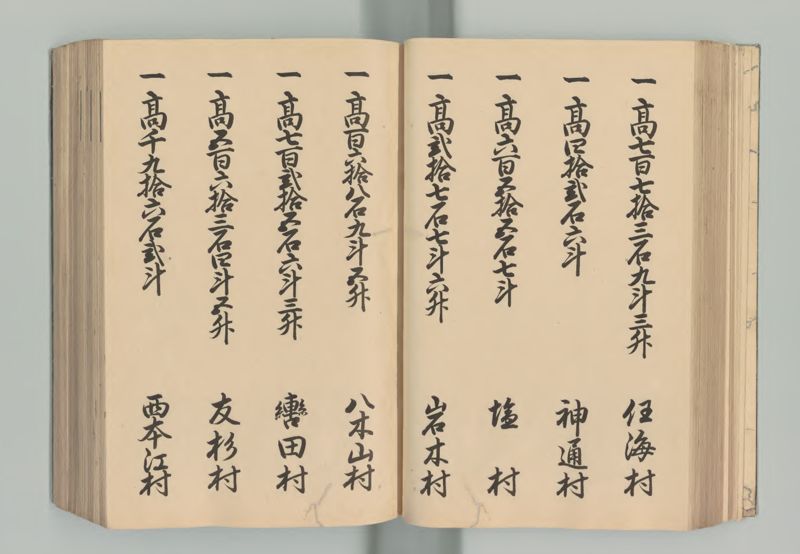 一 高七百七拾三石九斗三升 任海村
一 高四拾弐石六斗 神通村
一 高六百五拾五石七斗 塩 村
一 高弐拾七石七斗六升 岩木村
一 高百六拾八石九斗五升 八木山村
一 高七百弐拾五石六斗三升 轡田村
一 高五百六拾三石四斗五升 友杉村
一 高千九拾六石弐斗 西本江村